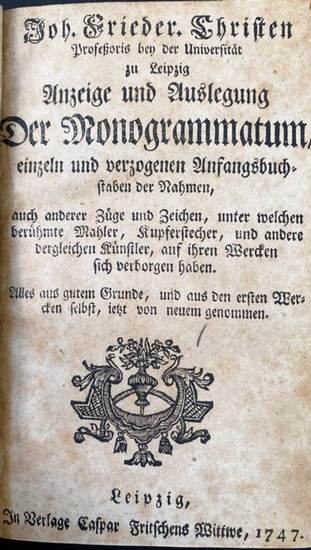 Joh. Frieder. Christen
Profeßoris bey der Universität
zu Leipzig
Anzeige und Auslegung
Der Monogrammatum,
einzeln und verzogenen Anfangsbuch-
staben der Nahmen,
auch anderer Züge und Zeichen, unter welchen
berühmte Mahler, Kupferstecher, und andere
dergleichen Künstler, auf ihren Wercken
sich verborgen haben.
Alles aus gutem Grunde, und aus den ersten Wer-
cken selbst, ietzt von neuem genommen.
Leipzig,
In Verlage Caspar Fritschens Wittwe, 1747.